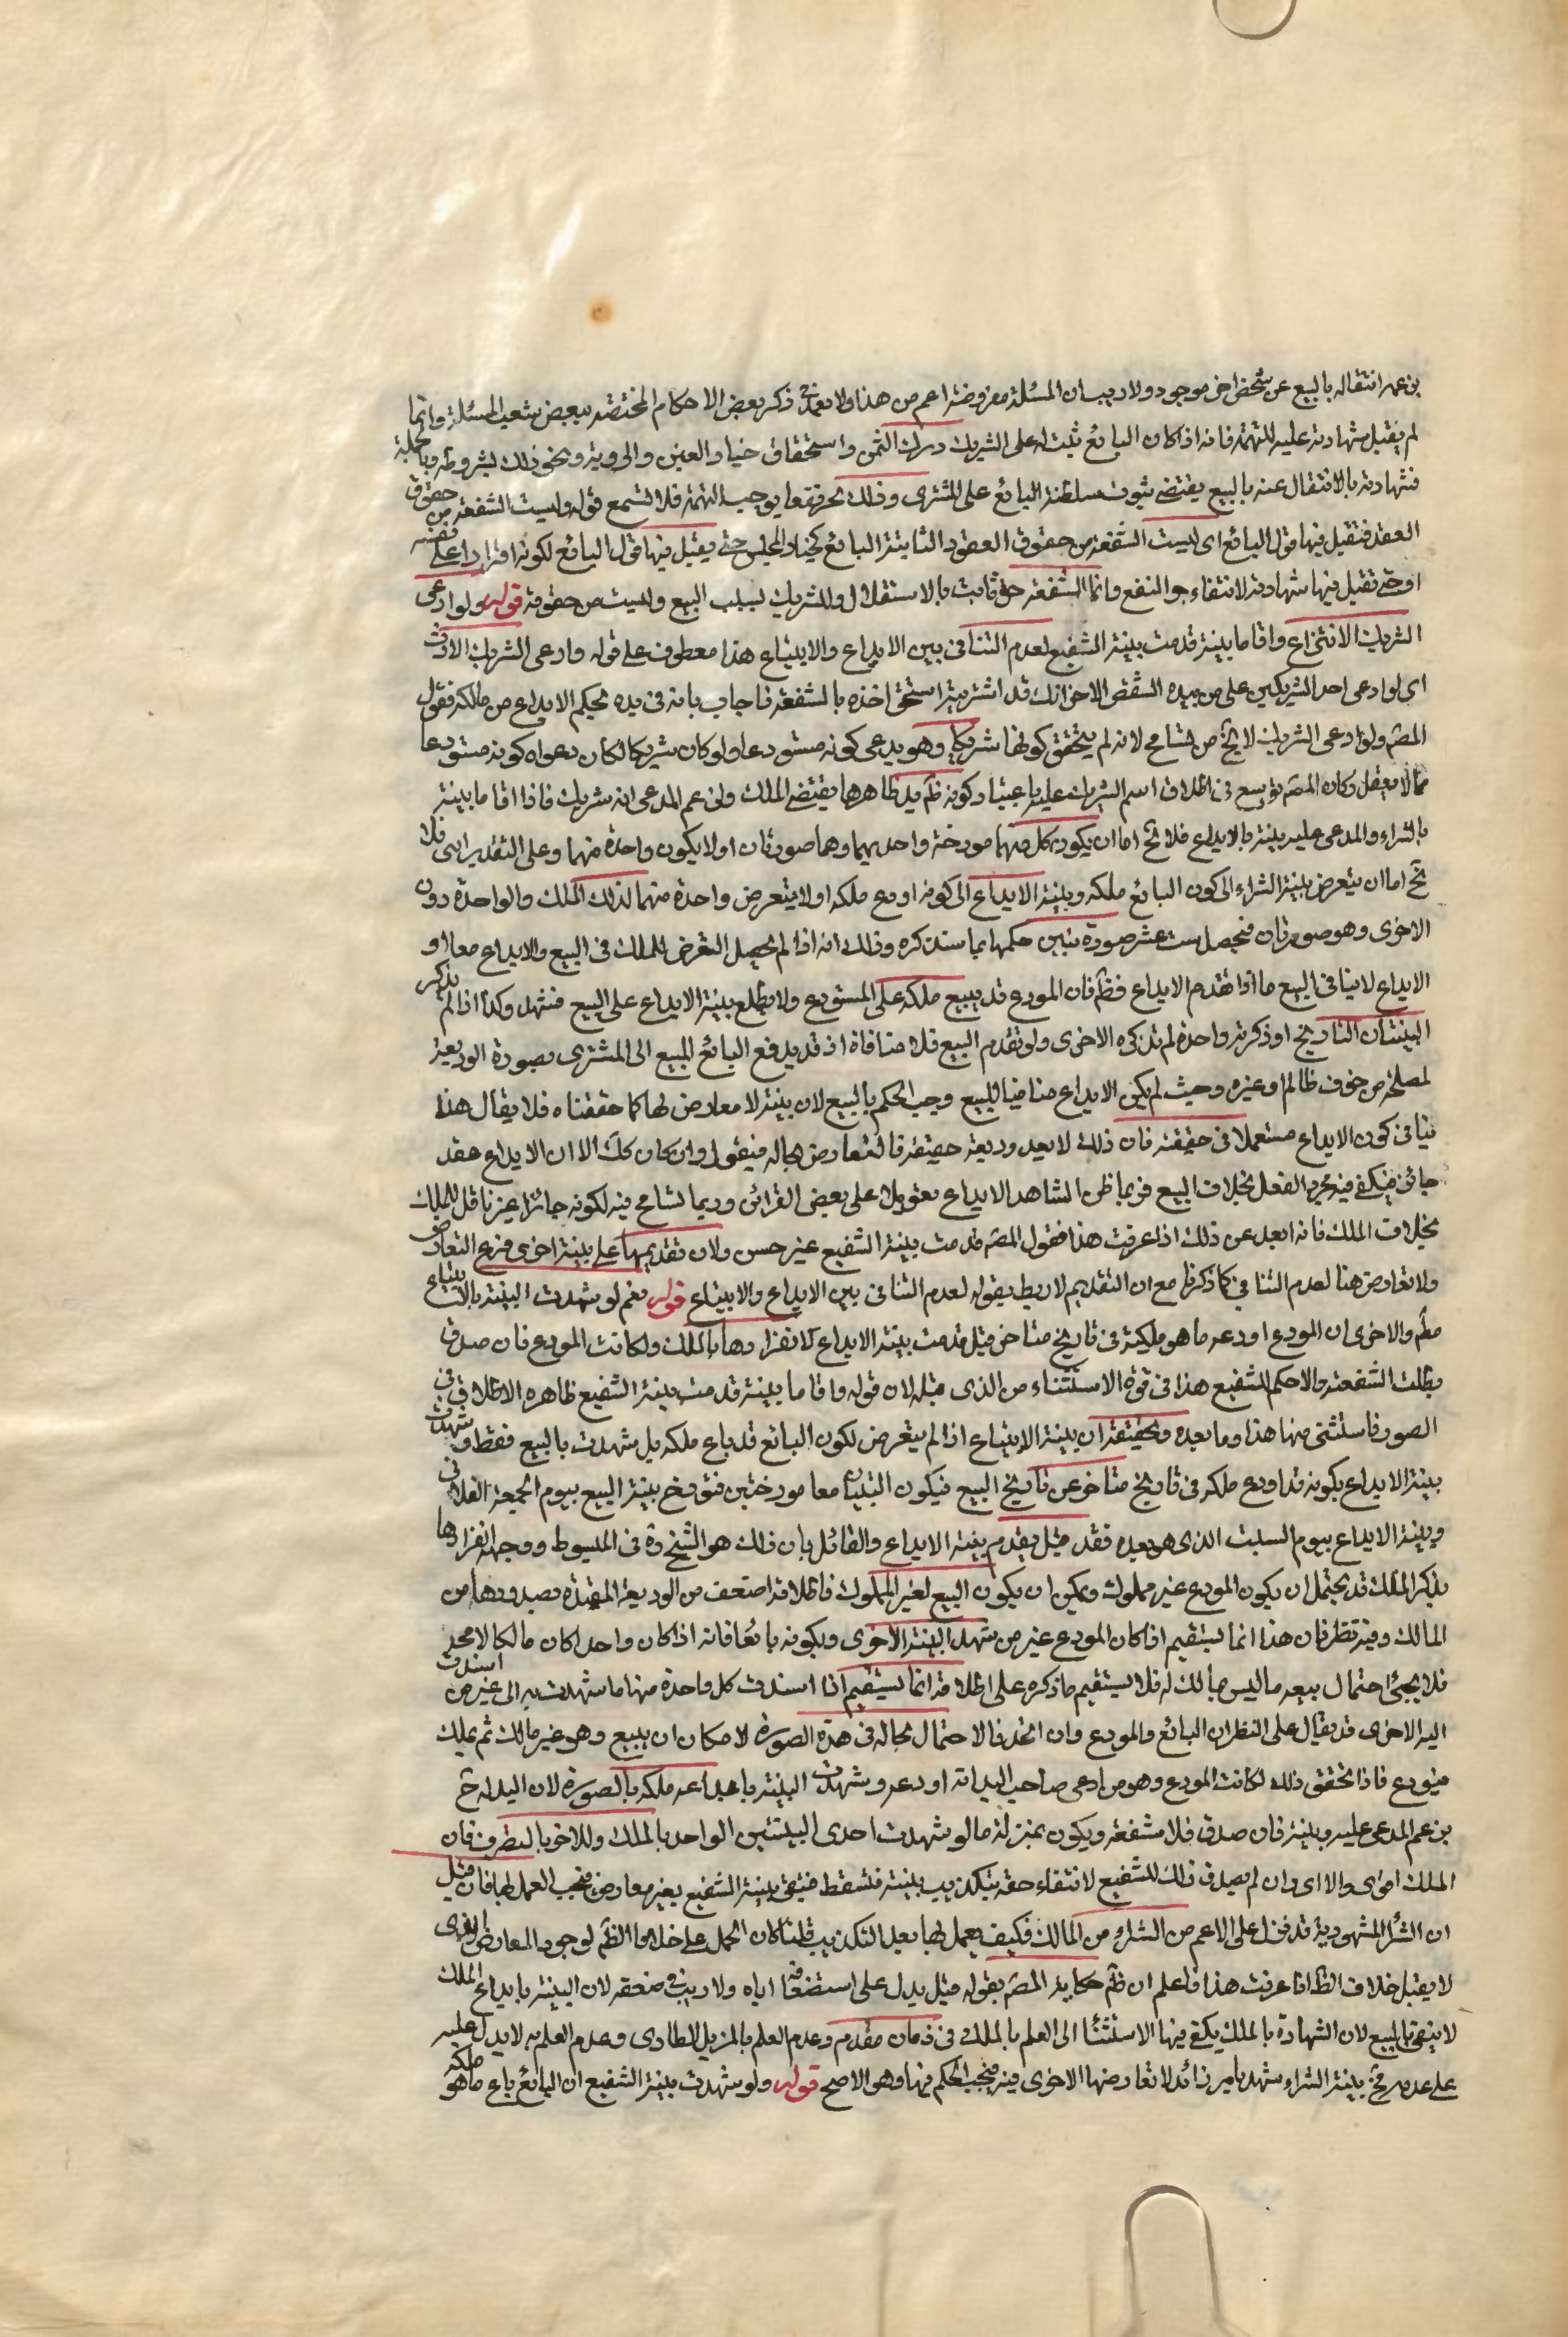 بزعمه انتقاله بالبيع عن شخص اخر موجود ولا ريب ان المسئلة مفروضة اعم من هذا ولا يعد في ذكر بعض الاحكام المختصة ببعض شعب المسئلة وانما
لم يقبل شهادته عليه للتهمة فانه اذا كان البائع ثبت له على الشريك درك الثمن واستحقاق خيار الغبن والروية ونحو ذلك بشروطه وبالجملة
فشهادته بالانتقال عنه بالبيع يقتضي ثبوت سلطنة البائع على المشتري وذلك يجر نفعا يوجب التهمة فلا تسمع قوله وليست الشفعة من حقوق
العقد فتقبل فيها قول البائع اى ليست الشفعة من حقوق العقود الثابتة للبائع كخيار المجلس حتى يقبل فيها قول البائع لكونه اقرارا على نفسه
او حتى تقبل فيها شهادته لانتفاء جر النفع وانما الشفعة حق ثابت بالاستقلال للشريك بسبب البيع وليست من حقوقه قوله ولو ادعى
الشريك الانتزاع واقاما بينة قدمت بينة الشفيع لعدم التنافى بين الايداع والابتياع هذا معطوف على قوله وادعى الشريك الارث
اى لو ادعى احد الشريكين على من بيده الشقص الاخر انك قد اشتريته استحق اخذه بالشفعة فاجاب بانه فى يده بحكم الايداع من مالكه فقول
المصـ ولو ادعى الشريك لا يخ من تسامح لانه لم يتحقق كونهما شريكا وهو يدعى كونه مستودعا ولو كان شريكا لكان دعواه كونه مستودعا
مما لا يعقل وكان المصـ توسع فى اطلاق اسم الشريك عليه باعتبار كونه ظـ يد ظاهرها يقتضى الملك وفى زعم المدعى انه شريك فاذا اقاما بينة
بالشراء والمدعى عليه بينة بالايداع فلا يخ اما ان يكون كل منهما مورخة واحديهما وهما صورتان او لا يكون واحدة منهما وعلى التقديرات فلا
يخ اما ان يتعرض بينة الشراء الى كون البائع ملكه وبينة الايداع الى كونه اودع ملكه او لا يتعرض واحدة منهما لذلك الملك والواحدة دون
الاخرى وهو صورتان فيحصل ست عشر صورة نبين حكمها بما سنذكره وذلك انه اذا لم يحصل التعرض للملك فى البيع والايداع معا او
الايداع لا ينافى البيع ما اذا تقدم الايداع فظـ فان المودع قد يبيع ملكه على المستودع ولا يطلع بينة الايداع على البيع فتشهد وكذا اذا لم يذكر
البينتان التاريخ او ذكرته واحدة لم تذكره الاخرى ولو تقدم البيع فلا منافاة اذ قد يدفع البائع المبيع الى المشترى بصورة الوديعة
لمصلحة من خوف ظالم وغيره وحيث لم يكن الايداع منافيا للبيع وجب الحكم بالبيع لان بينته لا معارض لها كما حققناه فلا يقال هذا
ينافى كون الايداع مستعملا فى حقيقته فان ذلك لا يعد وديعة حقيقة فالتعارض بحاله فنقول وان كان كك الا ان الايداع عقد
جائز فيكفى فيه مجرد الفعل بخلاف البيع فربما ظن الشاهد الايداع تعويلا على بعض القرائن وربما تسامح فيه لكونه جائزا غير ناقل للملك
بخلاف الملك فانه ابعد عن ذلك اذا عرفت هذا فقول المصـ قدمت بينة الشفيع غير حسن ولان تقديمها على بينة اخرى فرع التعارض
ولا تعارض هنا لعدم التنافى كما ذكرنا مع ان التقديم لا ربط بقوله لعدم التنافى بين الايداع والابتياع قوله نعم لو شهدت البينة بالابتياع
مطـ والاخرى ان المودع اودعه ما هو ملكه فى تاريخ متاخر قيل قدمت بينة الايداع لانفرادها بالملك ولكاتب المودع فان صدق
بطلت الشفعة والا حكم للشفيع هذا فى قوة الاستثناء من الذى قبله لان قوله واقاما بينة قدمت بينة الشفيع ظاهره الاطلاق فى
الصور فاستثنى منها هذا وما بعده وتحقيقه ان بينة الابتياع اذا لم يتعرض لكون البائع قد باع ملكه بل شهدت بالبيع فقط وشهدت
بينة الايداع بكونه قد اودع ملكه فى تاريخ متاخر عن تاريخ البيع فيكون البينتان معا مورختين فتورخ بينة البيع بيوم الجمعة الفلانى
وبينة الايداع بيوم السبت الذى هو بعده فقد قيل يقدم بينة الايداع والقائل بان ذلك هو الشيخ ره فى المبسوط ووجهه انفرادها
بذكر الملك قد يحتمل ان يكون المودع غير مملوك ويمكن ان يكون البيع لغير المملوك فاطلاقه اضعف من الوديعة المقيدة بصدورها من
المالك وفيه نظر فان هذا انما يستقيم اذا كان المودع غير من شهد البينة الاخرى وبكونه بائعا فانه اذا كان واحدا كان مالكا لا محة
فلا يجئ احتمال بيعه ما ليس مالك له فلا يستقيم ما ذكره على اطلاقه انما يستقيم اذا اسندت كل واحدة منها ما شهدت به الى غير من اسندت
اليه الاخرى قد يقال على النظر ان البائع والمودع وان اتحد فالاحتمال بحاله فى هذه الصورة لامكان ان يبيع وهو غير مالك ثم يملك
فيودع فاذا تحقق ذلك لكاتب المودع وهو من ادعى صاحب اليد انه اودعه وشهدت البينة بايداعه ملكه بالصورة لان اليد له ح
بزعم المدعى عليه وبينته فان صدق فلا شفعة ويكون بمنزلة ما لو شهدت احدى البينتين لواحد بالملك وللاخر بالتصرف فان
الملك اقوى والا اى وان لم يصدق ذلك للشفيع لانتفاء حقه بتكذيب بينته فتسقط فتبقى بينة الشفيع بغير معارض فيجب العمل بها فان قيل
ان الشراء المشهود به قد نزل على الاعم من الشراء من المالك فكيف يعمل بها بعد التكذيب قلنا كان الحمل على خلاف الظـ لوجود المعارض الاقوى
لا يقبل خلاف الظـ اذا عرفت هذا فاعلم ان ظـ حكاية المصـ بقوله قيل يدل على استضعافه اياه ولا ريب فى ضعفه لان البينة بايداع الملك
لا ينفى البيع لان الشهادة بالملك يكفى فيها الاستناد الى العلم بالملك فى زمان متقدم وعدم العلم بالمزيل الطارى وعدم العلم به لا يدل عليه
على عدمه فح بينة الشراء يشهد بامر زائد لا تعارضها الاخرى فيه فيجب الحكم بها وهو الاصح قوله ولو شهدت بينة الشفيع ان البائع باع ما هو ملكه